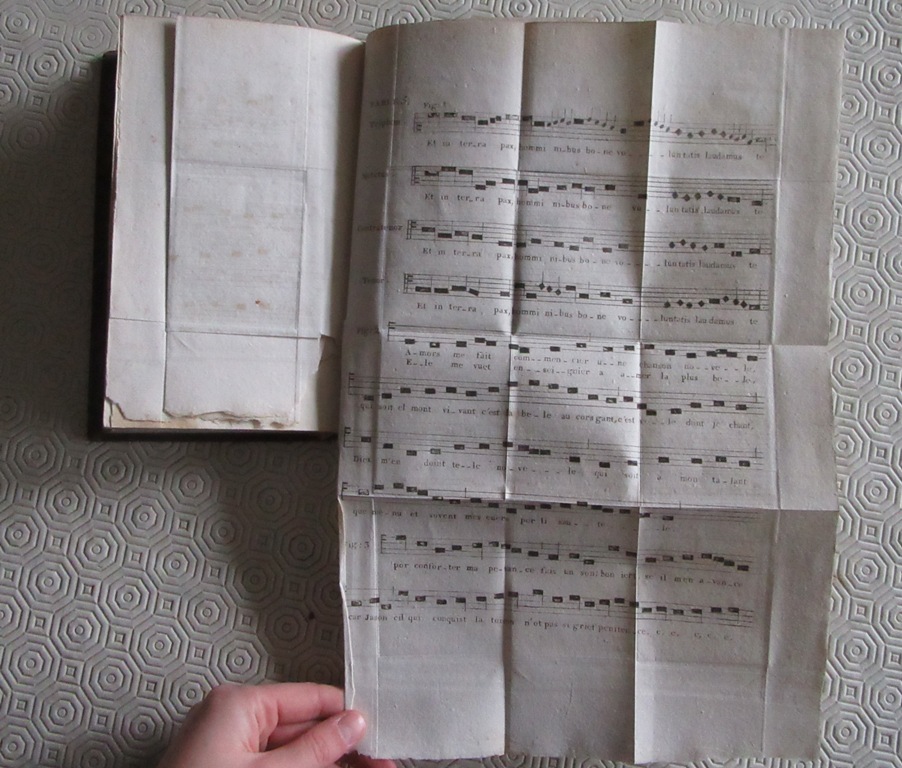 Et in ter_ra pax, hommi ni_bus bo_ne vo_ _ _ luntatis laudamus te
Et in ter_ra pax, hommi ni_bus bo_ne vo_ _ _ luntatis laudamus te
Contratenor
Et in ter_ra pax, hommi ni_bus bo_ne vo_ _ _ _ luntatis laudamus te
Tenor
Et in ter_ra pax, hommi ni_bus bo_ne vo_ _ _ luntatis laudamus te
A_mors me fait com_ _men_cier u_ _ne chanson no_ve_ _le,
E_ _le me vuet en_ _sei_ _gnier a a_mer la plus be_ _le,
el mont vi_vant c'est la be_le au cors gent, c'est e_ _le dont je chant,
Diex m'en doint te_le no_ve_ _ _ _le qui soit a mon ta_lant
que me_nu et sovent mes cuers por li sou_ _ te_ le
por confor_ter ma pe_san_ce fais un son; bon il men a_van_ce
car Jason cil qui conquist la toison n'ot pas si grief peniten_ce, e, e, e, e, e.